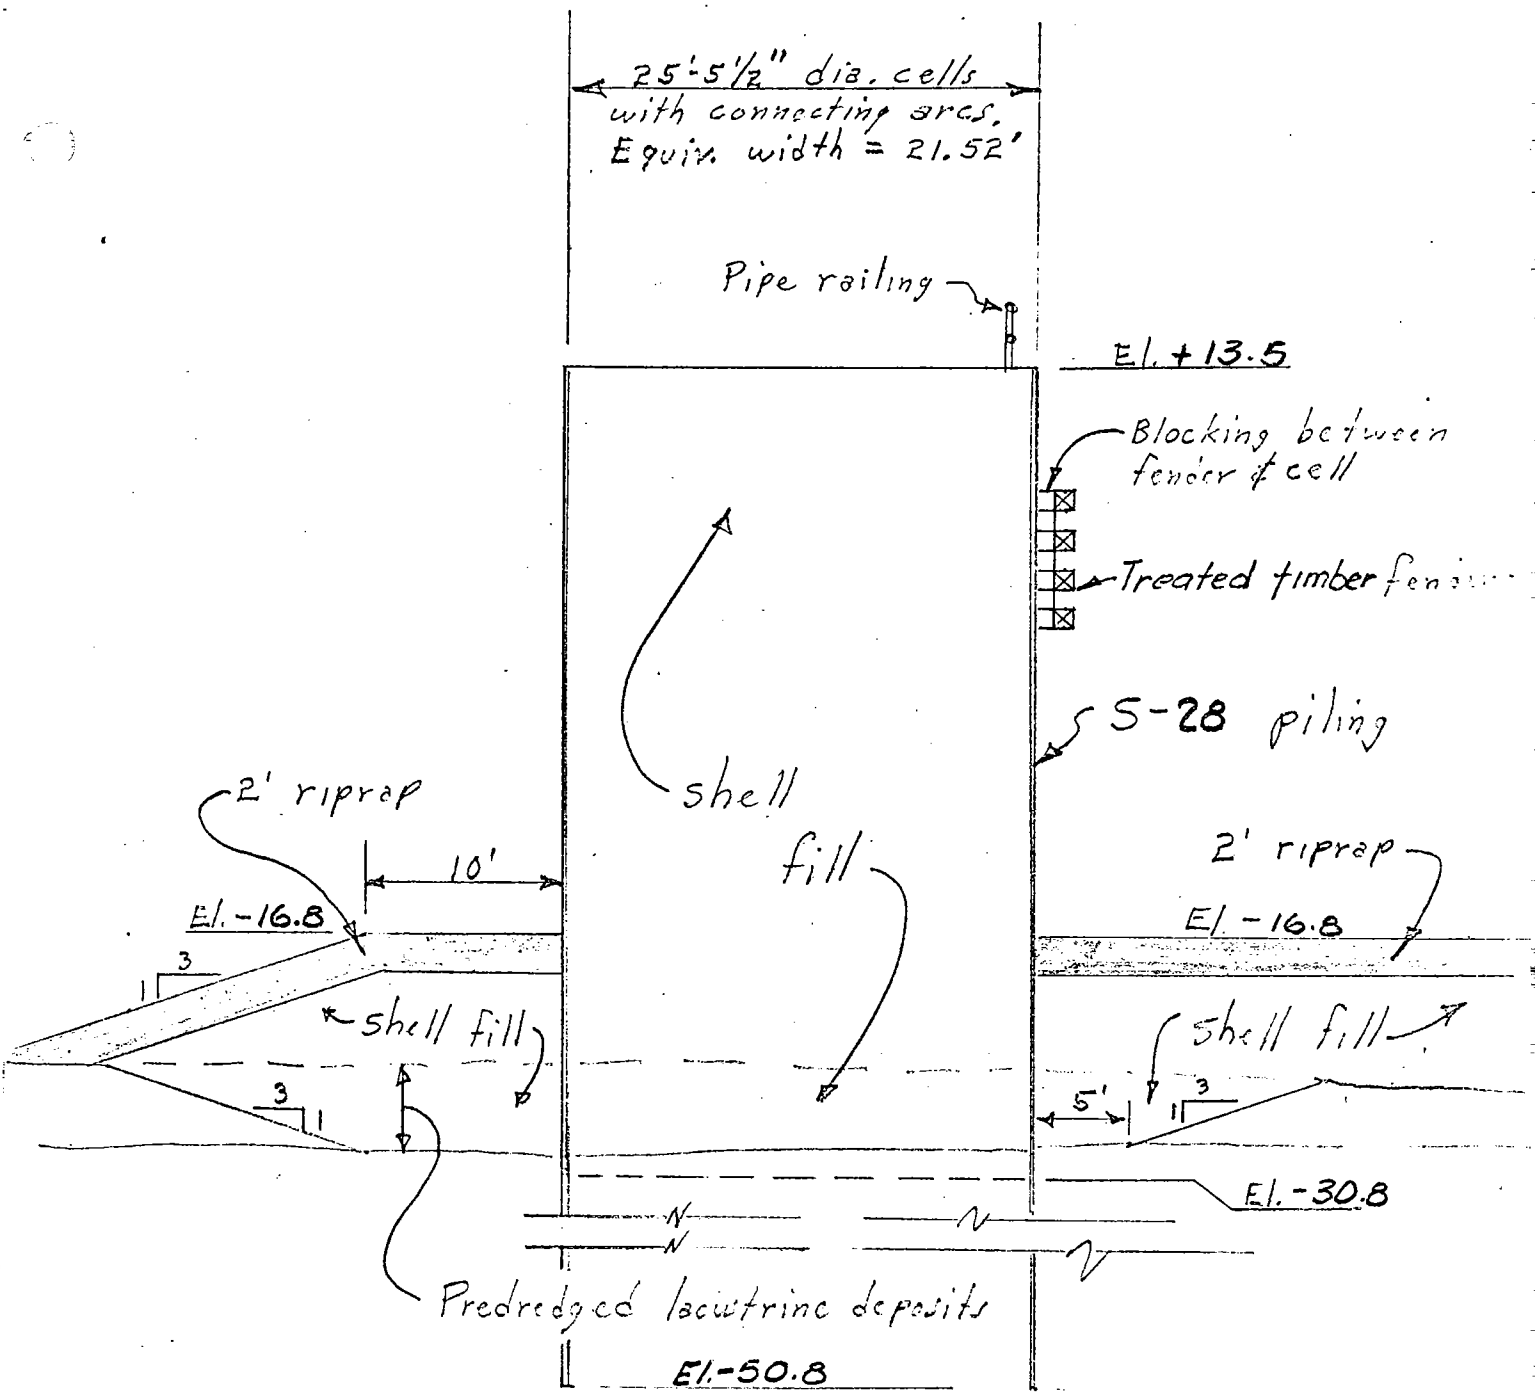 25'-5 1/2" dia. cells
with connecting arcs.
Equiv. width = 21.52'
Pipe railing
El. +13.5
Blocking between
fender & cell
Treated timber
S-28 piling
shell
fill
2' riprap
10'
El. -16.8
3
1
shell fill
3
1
2' riprap
El. -16.8
shell fill
5'
3
1
El. -30.8
Predredged lacustrine deposits
El. -50.8